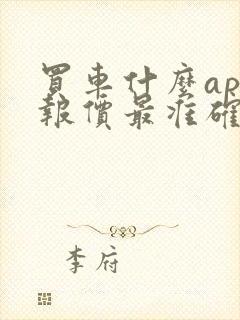 買車什麼ap
報價最准確
李府